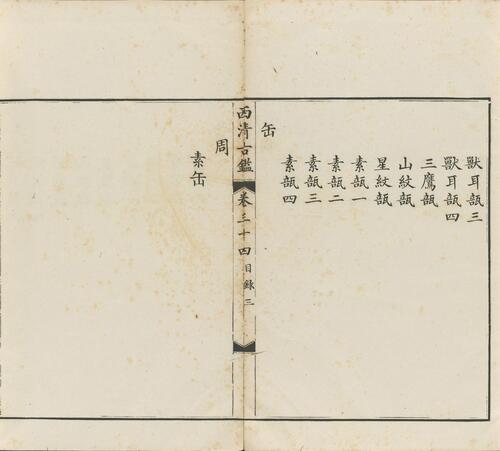 獸耳瓿三
獸耳瓿四
三鷹瓿
山紋瓿
星紋瓿
素瓿一
素瓿二
素瓿三
素瓿四
缶
西清古鑑 卷三十四 目錄 三
周
素缶